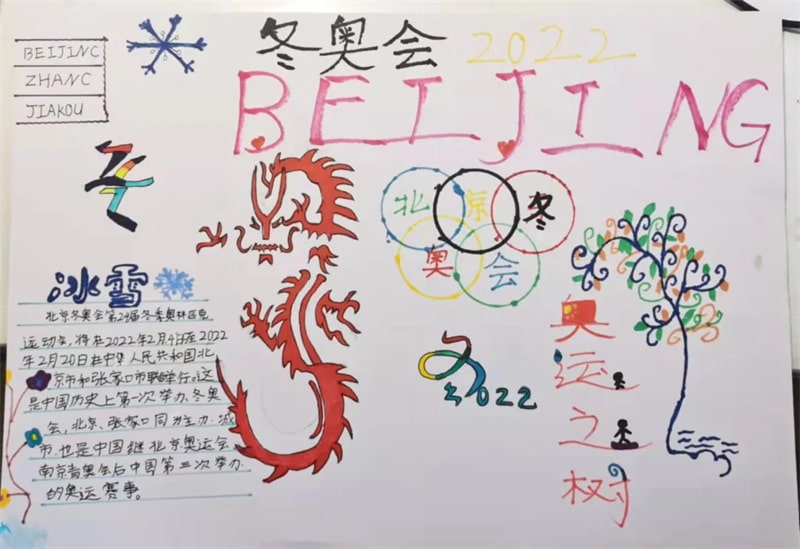 冬奥会 2022
BEIJING
BEIJINC
ZHANC
JIAKOU
北京冬
奥会
冰雪
北京冬奥会第24届冬季奥林匹克
运动会，将在2022年2月4日至2022
年2月20日在中华人民共和国北
京市和张家口市联举行。这
是中国历史上第一次举办冬奥
会，北京、张家口同为主办城
市，也是中国继北京奥运会
南京青奥会后中国第三次举办
的奥运赛事。
2022
奥
运
之
树